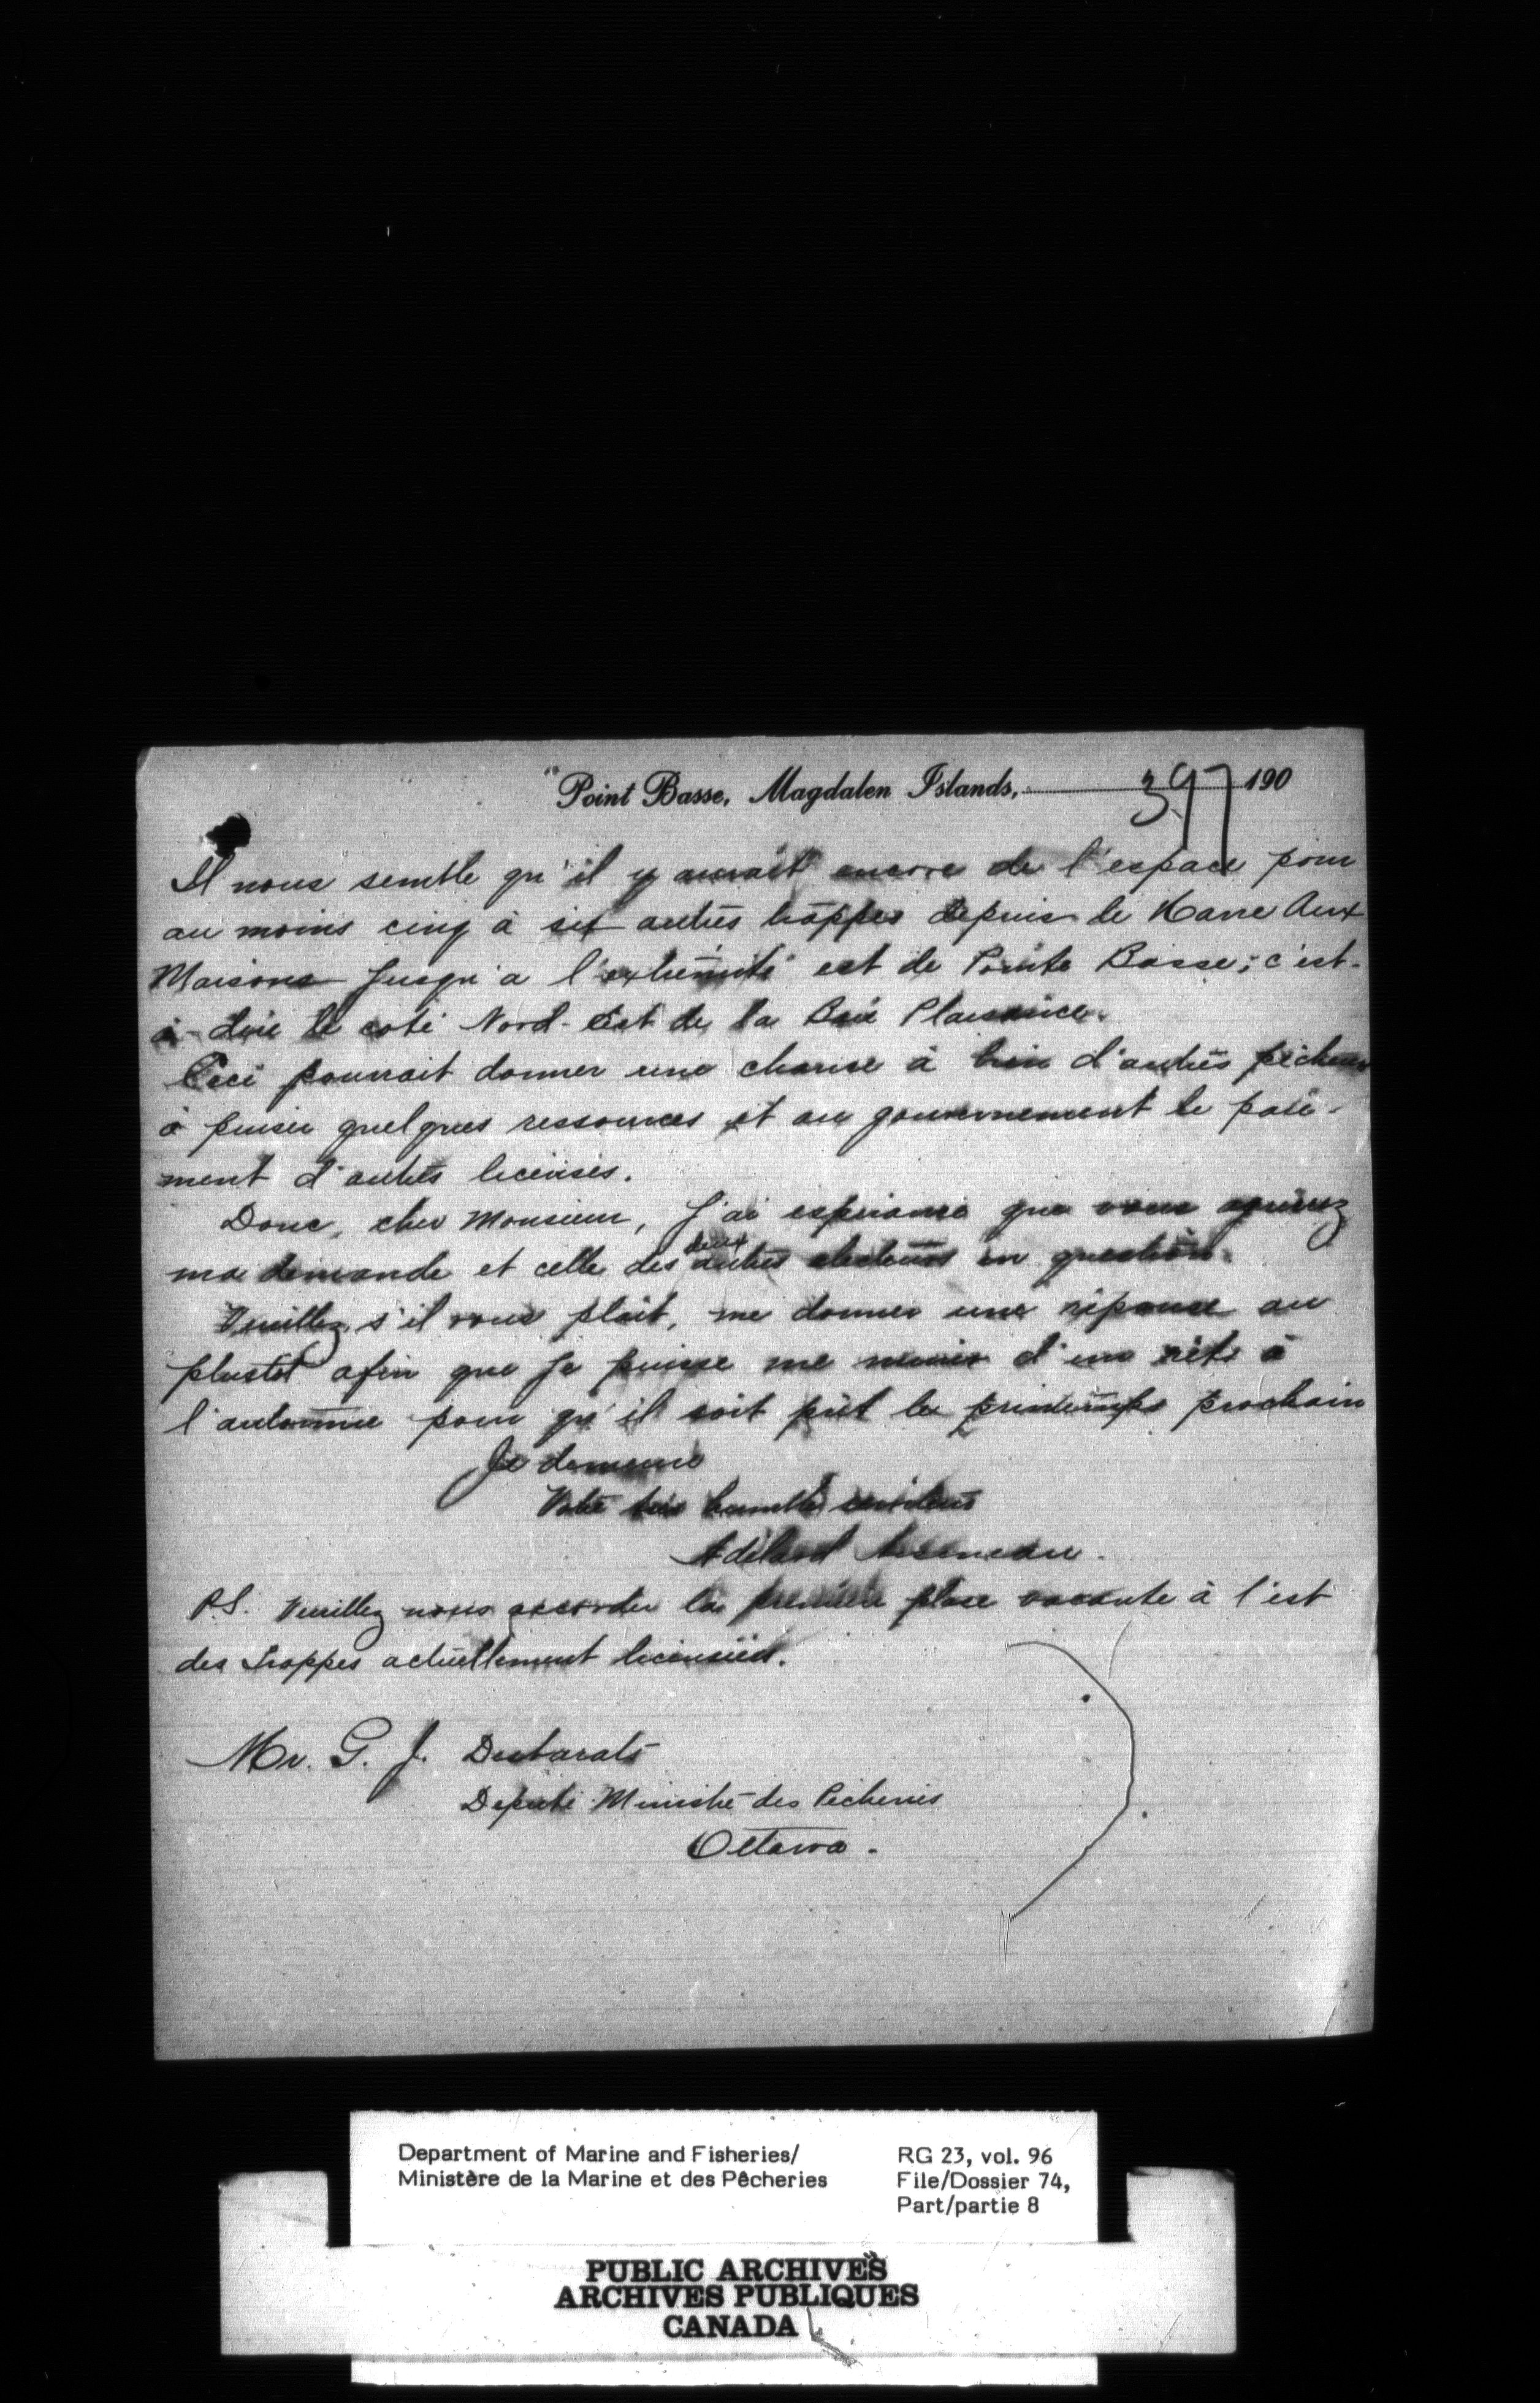 Point Basse, Magdalen Islands, 397 190
Il nous semble qu'il y aurait encore de l'espace pour
au moins cinq à six autres trappes depuis le Havre Aux
Maisons jusqu'a l'extrémité est de Pointe Basse; c'est-
à-dire le coté Nord-Est de la Baie Plaisance.
Ceci pourrait donner une chance à bien d'autres pêcheurs
à puiser quelques ressources et au gouvernement le paie-
ment d'autres licenses.
Donc, cher Monsieur, J'ai espérance que vous agréerez
ma demande et celle des deux autres electeurs en question.
Veuillez, s'il vous plait, me donner une réponse au
plustôt afin que je puisse me munir d'un rêts à
l'automne pour qu'il soit prêt le printemps prochain
Je demeure
Votre très humble serviteur
Adélard Arseneau.
P.S. Veuillez nous accorder la première place vacante à l'est
des Trappes actuellement licensiées.
Mr. G. J. Desbarats
Député Ministre des Pêcheries
Ottawa.
Department of Marine and Fisheries/
Ministère de la Marine et des Pêcheries
RG 23, vol. 96
File/Dossier 74,
Part/partie 8
PUBLIC ARCHIVES
ARCHIVES PUBLIQUES
CANADA